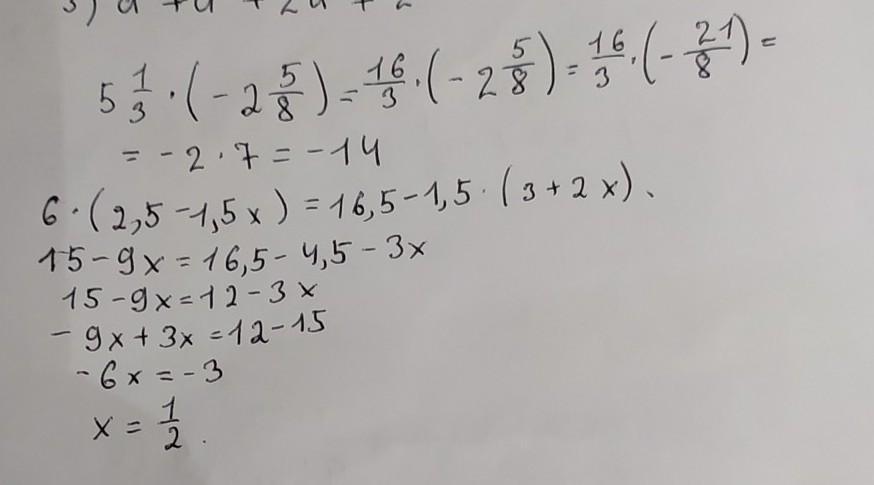 5 1/3 · (- 2 5/8) = 16/3 · (- 2 5/8) = 16/3 · (- 21/8) =
= - 2 · 7 = - 14
6 · (2,5 - 1,5x) = 16,5 - 1,5 · (3 + 2x).
15 - 9x = 16,5 - 4,5 - 3x
15 - 9x = 12 - 3x
- 9x + 3x = 12 - 15
- 6x = - 3
x = 1/2.